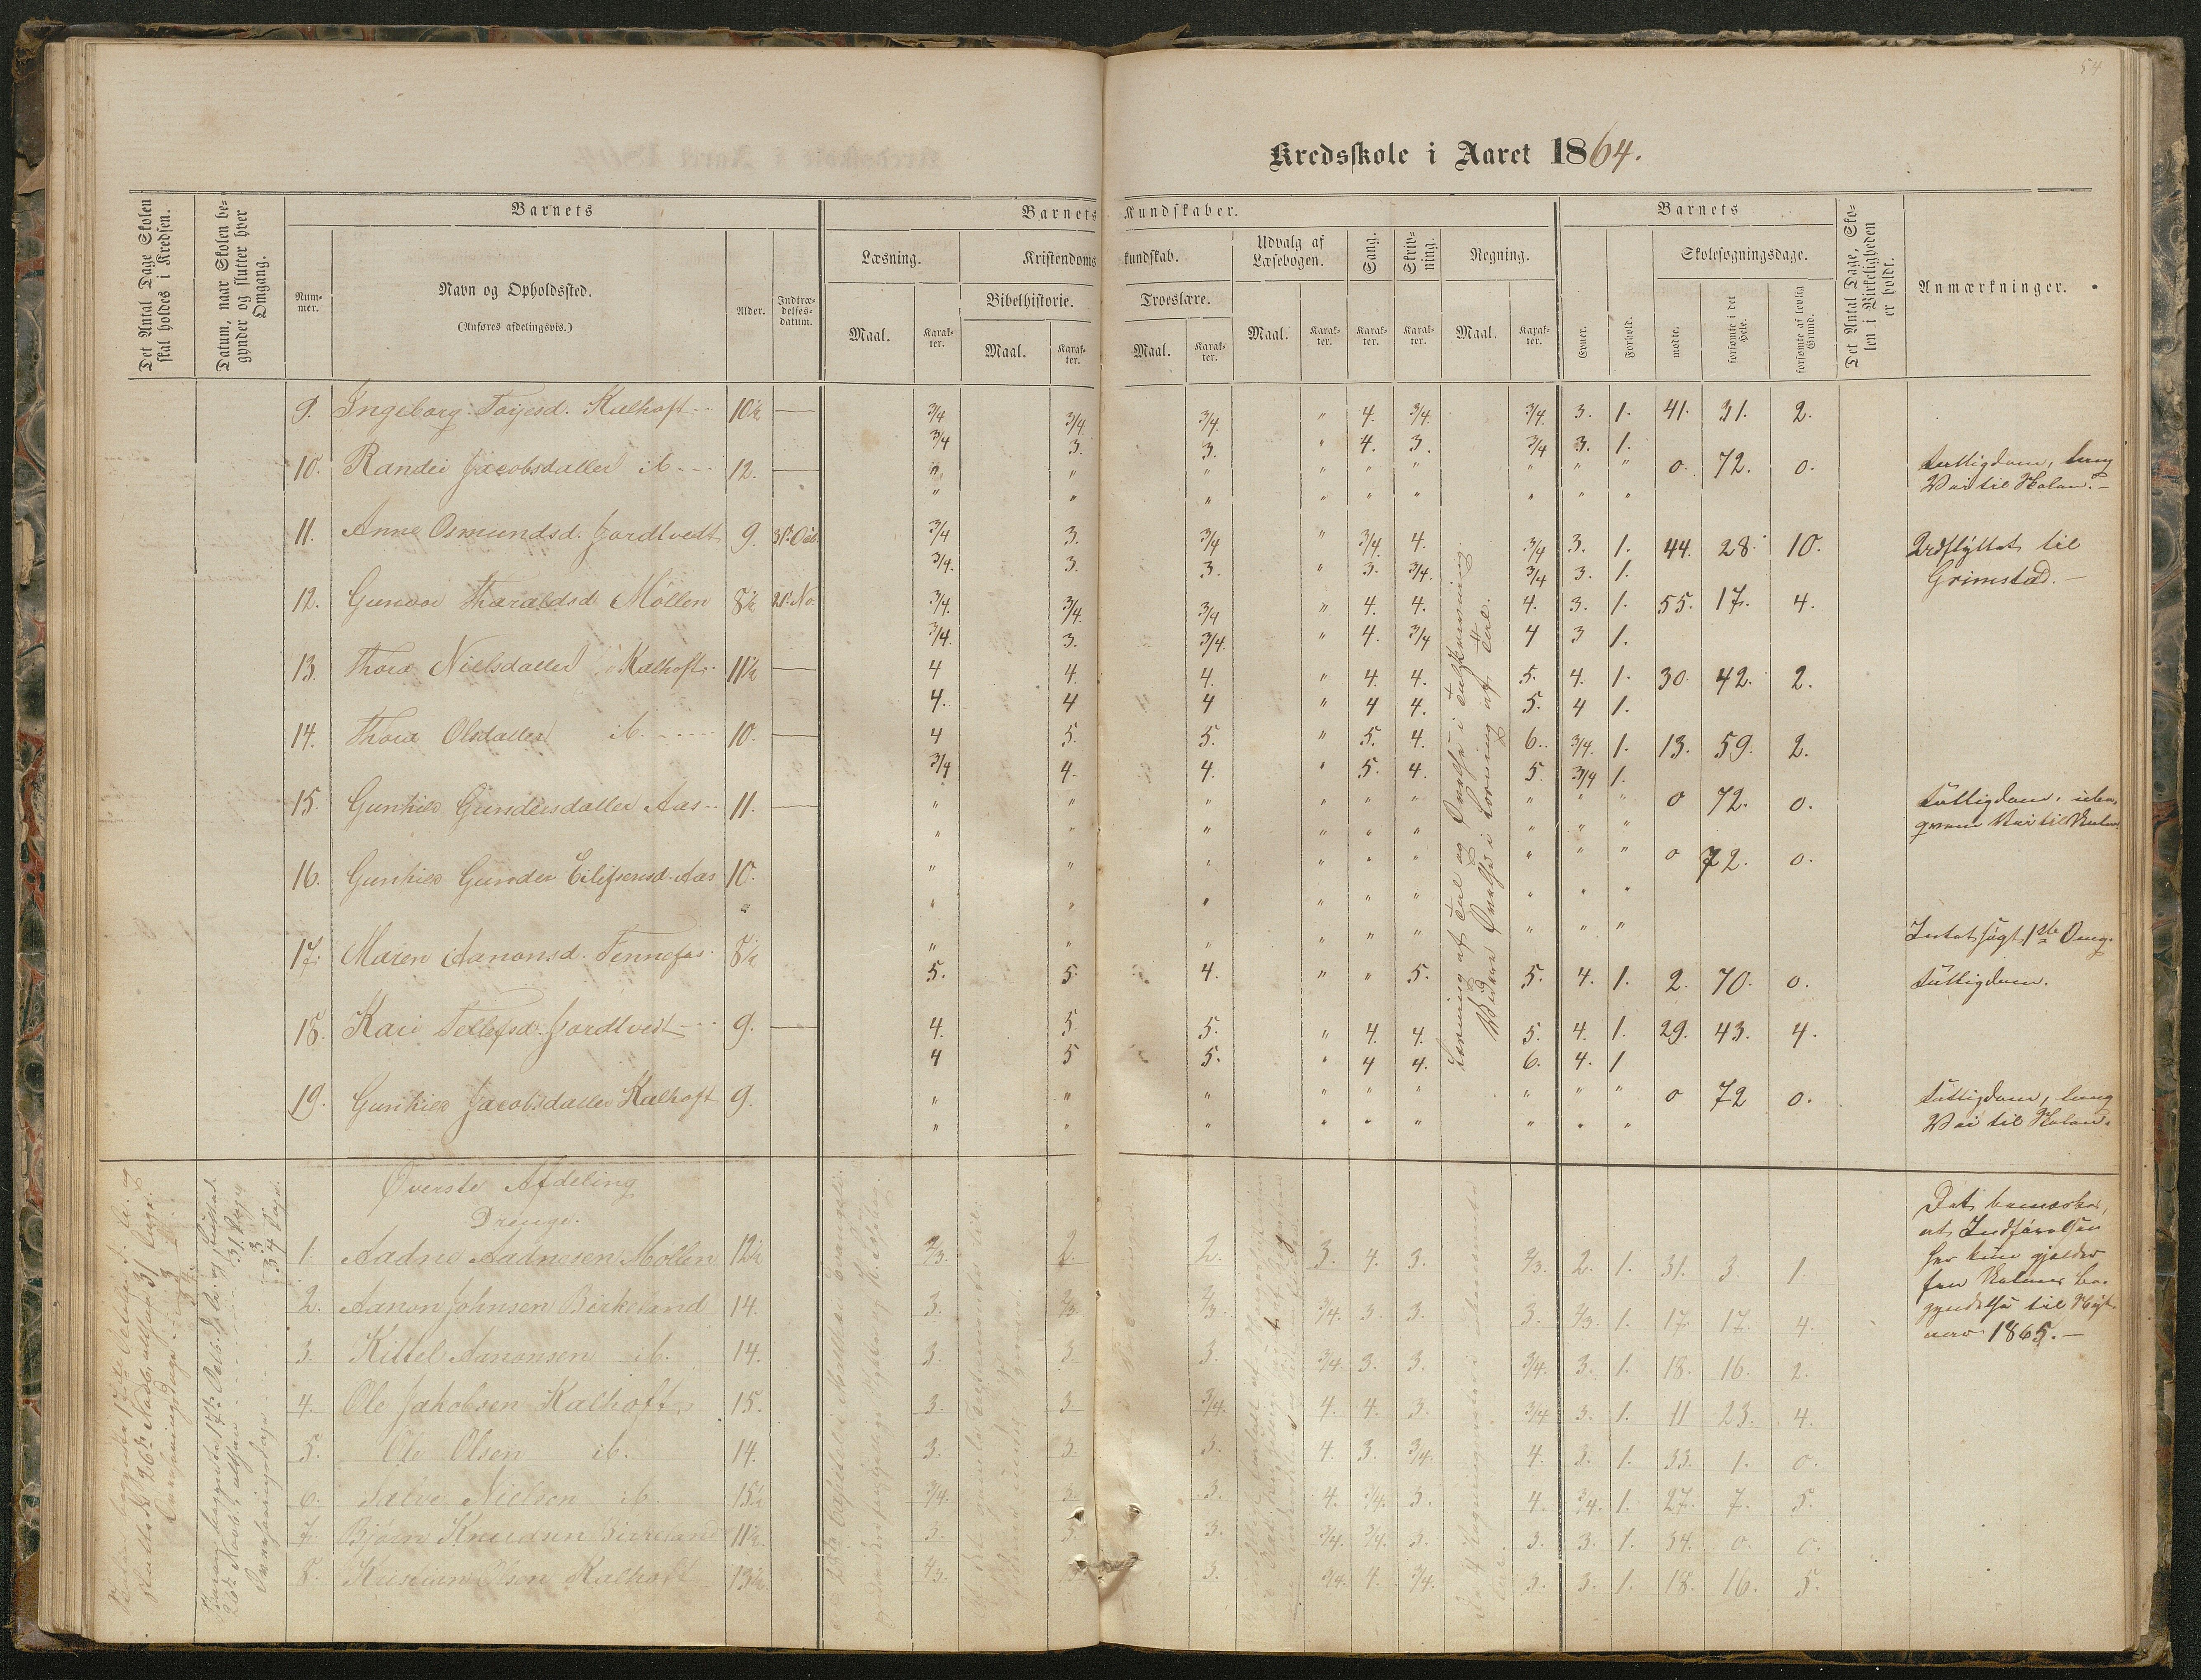 54
Kredsskole i Aaret 1864.
Det Antal Dage Skolen skal holdes i Kredsen.
Datum, naar Skolen begynder og slutter hver Omgang.
Barnets
Nummer.
Navn og Opholdssted.
(Anføres afdelingsvis.)
Alder.
Indtrædelsesdatum.
Barnets Kundskaber.
Læsning.
Maal.
Karakter.
Kristendomskundskab.
Bibelhistorie.
Maal.
Karakter.
Troeslære.
Maal.
Karakter.
Udvalg af Læsebogen.
Maal.
Karakter.
Sang.
Karakter.
Skrivning.
Karakter.
Regning.
Maal.
Karakter.
Barnets
Evner.
Forhold.
Skolesøgningsdage.
mødte.
forsømte i det Hele.
forsømte af lovlig Grund.
Det Antal Dage, Skolen i Virkeligheden er holdt.
Anmærkninger.
9. Ingeborg Tarjesd. Kalhoft 10½ — 3/4 3/4 3/4 " 4. 3/4. 3/4. 3. 1. 41. 31. 2.
3/4 3. 3. " 4. 3. 3/4 3. 1.
10. Randei Jacobsdatter ib. 12. — " " " " " " " " " 0. 72. 0. Fattigdom, lang
Vei til Skolen.
11. Anne Osmundsd. Jordtvedt 9. 31te Oct. 3/4 3. 3/4 " 3/4 4. 3/4 3. 1. 44. 28. 10. Udflyttet til
3/4. 3. 3. " 3. 3/4. 3/4 3. 1. Grimstad.
12. Gunvor Tharaldsd. Möllen 8½ 21. No. 3/4. 3/4. 3/4 " 4. 4. 4. 3. 1. 55. 17. 4.
3/4. 3. 3/4. " 4. 3/4 4 3 1.
13. Thora Nielsdatter Kalhoft 11½ — 4 4. 4. " 4. 4. 5. 4. 1. 30. 42. 2.
4. 4 4 " 4 4. 5. 4 1.
14. Thora Olsdatter ib. 10. — 4 5. 5. " 5. 4. 6. 3/4. 1. 13. 59. 2.
3/4 4. 4. " 5. 4. 5. 3/4 1.
15. Gunhild Gundersdatter Aas 11. — " " " " " " " " " 0 72. 0. Fattigdom,
Vei til Skolen
16. Gunhild Gunder Eilifsensd. Aas 10. " " " " " " " " " 0 72. 0.
17. Maren Aanonsd. Tennefos 8½ " " " " " " " " " Intet søgt 1ste Omg.
5. 5. 4. " " 5. 5. 4. 1. 2. 70. 0. Fattigdom.
18. Kari Tellefsd. Jordtvedt 9. — 4. 5 5. " 4 4. 5. 4. 1. 29. 43. 4.
4 5 5. " 4 4. 6. 4. 1
19. Gunhild Jacobsdatter Kalhoft 9. " " " " " " " " " 0 72 0. Fattigdom, lang
Vei til Skolen.
Læsning af Tal og Øvelse i Talskrivning.
Videre Øvelse i Læsning af Tal.
Øverste Afdeling
Drenge.
1. Aadne Aadnesen Möllen 12½ 2/3. 2. 2. 3. 4. 3. 2/3. 2. 1. 31. 3 1.
2. Aanon Johnsen Birkeland 14. 3. 2/3. 2/3 3/4. 3. 3. 3. 2/3. 1. 17. 17. 4.
3. Kittel Aanonsen ib. 14. 3. 3. 3. 3/4. 3. 3. 3/4. 3. 1. 18. 16. 2.
4. Ole Jakobsen Kalhoft 15. 3. 3. 3/4. 4. 4. 3. 3/4 3. 1. 11 23. 4.
5. Ole Olsen ib. 14. 3. 3. 3. 4. 3. 3/4. 4. 3. 1. 33. 1. 0.
6. Salve Nielsen ib. 15½ 3/4. 3. 3. 4. 3/4. 3. 4. 3/4. 1. 27. 7. 5.
7. Bjørn Knudsen Birkeland 11½ 3. 3. 3. 3/4. 3/4. 3. 3. 3. 1. 34. 0. 0.
8. Kristian Olsen Kalhoft 13½. 3. 3/4. 4. 3/4. 3. 3. 1. 18. 16. 5.
Det bemærkes,
at Indførelsen
her kun gjelder
fra Skolens be-
gyndelse til Nyt-
aar 1865.